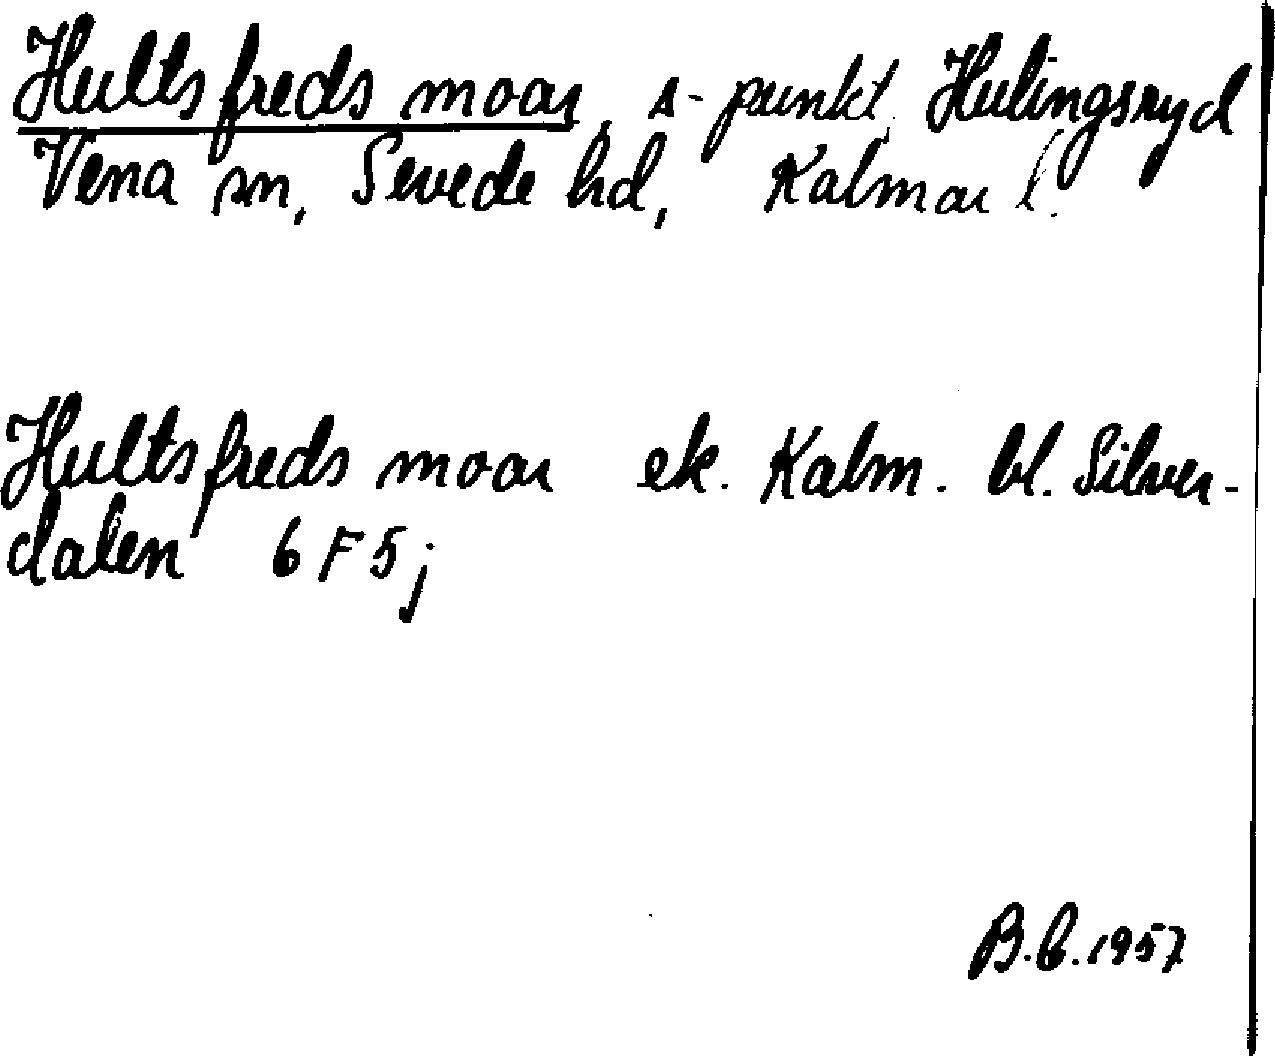 Hultsfreds moar, s-punkt, Hulingsryd
Vena sn, Sevede hd, Kalmar l.
Hultsfreds moar ek. Kalm. bl. Silver-
dalen 6 F 5 j
B.b.1957